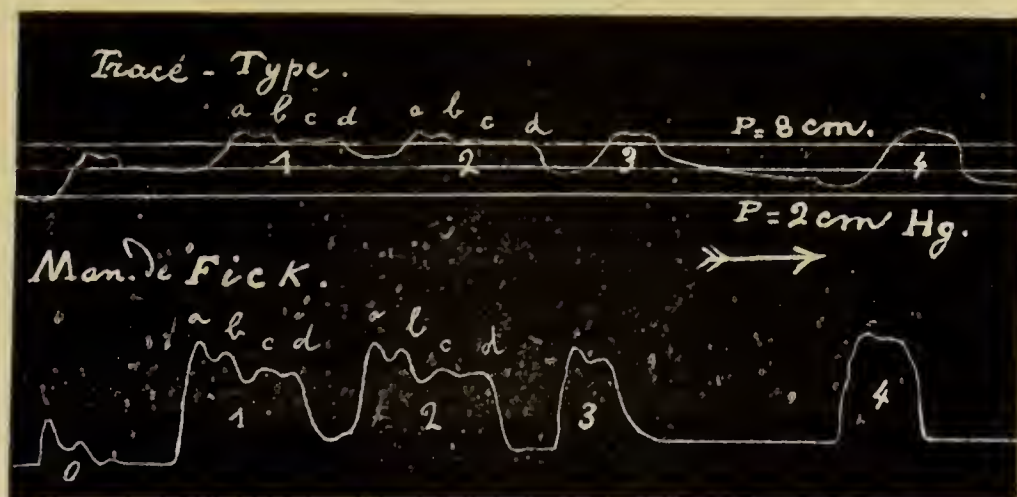 Tracé - Type.
a b c d a b c d P = 8 cm.
1 2 3 4
P = 2 cm Hg.
Man. de Fick.
a b c d a b c d
1 2 3 4
0